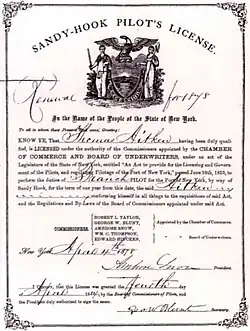 SANDY-HOOK PILOT'S LICENSE.
Renewal for 1878
In the Name of the People of the State of New York.
To all to whom these Presents shall come, Greeting:
KNOW YE, That Thomas Aitken having been duly quali-
fied, is LICENSED under the authority of the Commissioners appointed by the CHAMBER
OF COMMERCE AND BOARD OF UNDERWRITERS, under an act of the
Legislature of the State of New York, entitled "An Act to provide for the Licensing and Govern-
ment of the Pilots, and regulating Pilotage of the Port of New York," passed June 28th, 1853, to
perform the duties of Branch PILOT for the Port of New York, by way of
Sandy Hook, for the term of one year from this date, the said Aitken
conforming himself in all things to the requisitions of said Act,
and the Regulations and By-Laws of the Board of Commissioners appointed under said Act.
COMMISSIONERS,
ROBERT L. TAYLOR,
GEORGE W. BLUNT,
AMBROSE SNOW,
WM. C. THOMPSON,
Appointed by the Chamber of Commerce.
" " Board of Underwriters.
New York April 4th 1878
Ambrose Snow
President.
that this License was granted the fourth day of
April 1878, by the Board of Commissioners of Pilots, and the
President duly authorized to sign the same.
Geo W Blunt Secretary.